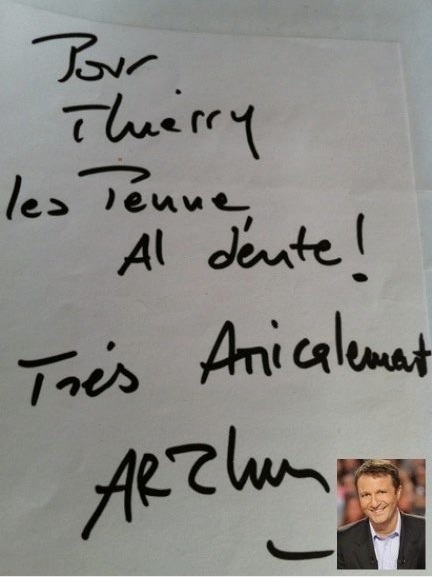 Pour
Thierry
les Penne
Al dente!
Très Amicalement
ARThur